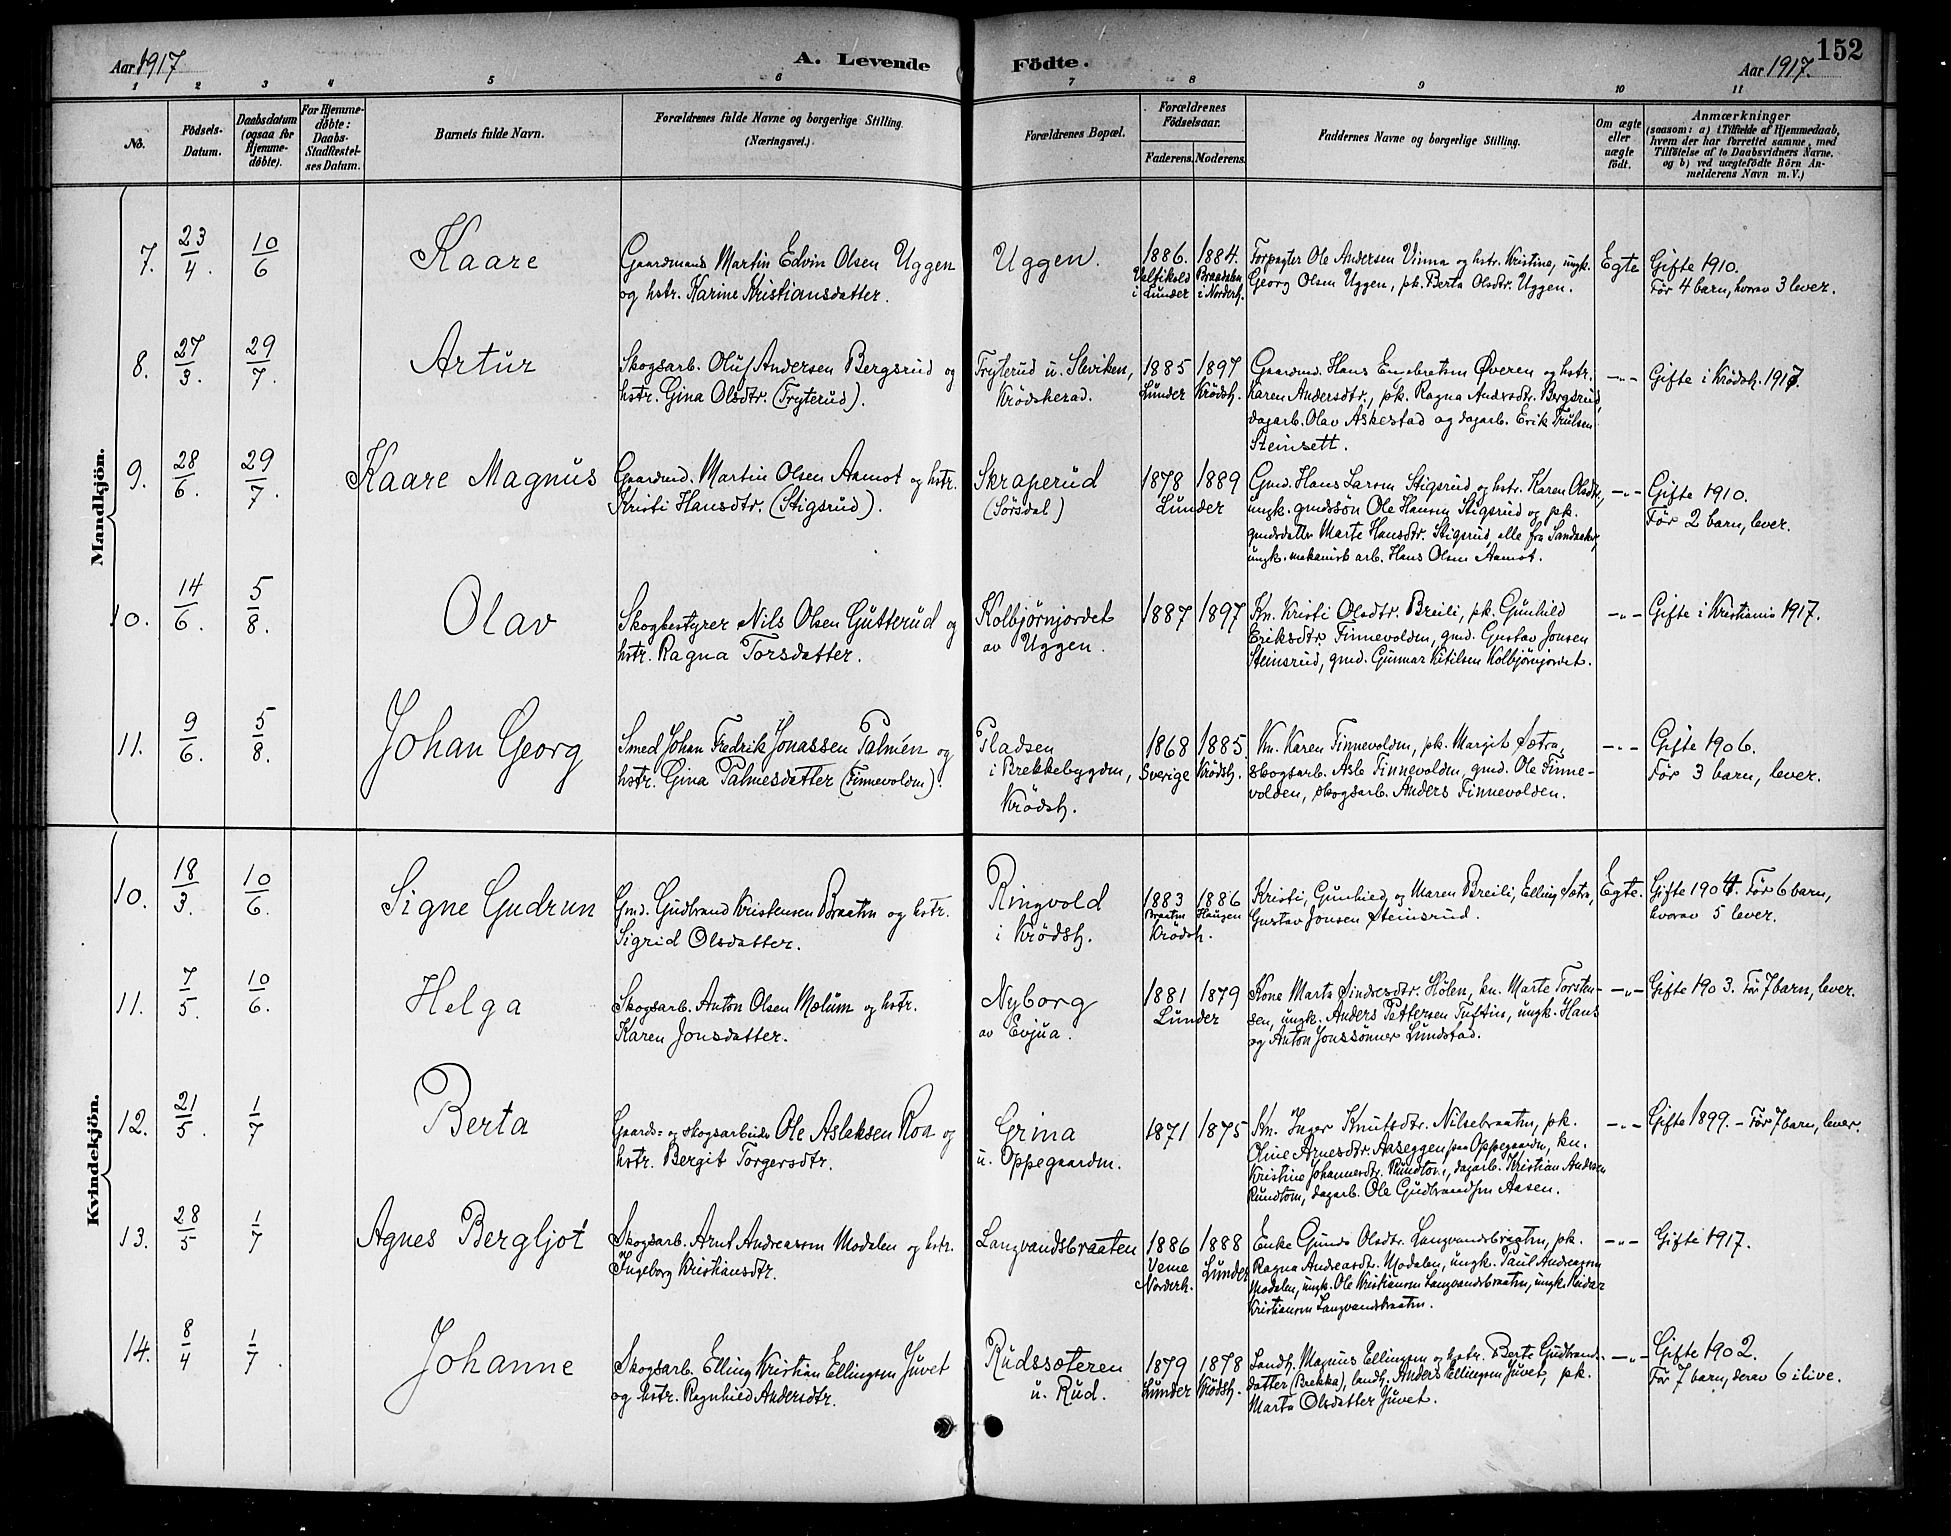 Aar 1917
A. Levende Födte.
Aar 1917.
152
1 2 3 4 5 6 7 8 9 10 11
No.
Födsels-Datum.
Daabsdatum (ogsaa for Hjemme-døbte).
For Hjemme-døbte: Daabs-Stadfæstel-ses Datum.
Barnets fulde Navn.
Forældrenes fulde Navne og borgerlige Stilling. (Næringsvei.)
Forældrenes Bopæl.
Forældrenes Födselsaar.
Faderens. Moderens.
Faddernes Navne og borgerlige Stilling.
Om ægte eller uægte födt.
Anmærkninger
(saasom: a) i Tilfælde af Hjemmedaab,
hvem der har forrettet samme, med
Tilföielse af to Daabsvidners Navne,
og b) ved uægtefödte Börn An-
melderens Navn m. V.)
Mandkjön.
7. 23/4. 10/6 Kaare
Gaardmand Martin Edvin Olsen Uggen
og hstr. Karine Kristiansdatter.
Uggen.
1886. Velfikold i Lunder
1884. Braadalen i Norderh.
Forpagter Ole Andersen Vinna og hstr. Kristine, ungk.
Georg Olsen Uggen, pk. Berta Olsdtr. Uggen.
Egte
Gifte 1910.
Før 4 barn, hvorav 3 lever.
8. 27/3. 29/7. Artur
Skogsarb. Oluf Andersen Bergsrud og
hstr. Gina Olsdtr. (Tryterud).
Tryterud u. Sleviken,
Krødsherad.
1885 Lunder
1897 Krødsh.
Gaardmd. Hans Engebretsen Øveren og hstr.
Karen Andersdtr., pk. Ragna Andersdtr. Bergsrud,
dagarb. Olav Askestad og dagarb. Erik Trulsen
Steinsett.
—"—
Gifte i Krødsh. 1917.
9. 28/6. 29/7. Kaare Magnus
Gaardmd. Martin Olsen Aamot og hstr.
Kristi Hansdtr. (Stigsrud).
Skraperud
(Sørsdal)
1878 1889
Lunder
Gmd. Hans Larsen Stigsrud og hstr. Karen Olsdtr.,
ungk. gmdssön Ole Hansen Stigsrud og pk.
gmdsdatter Marte Hansdtr. Stigsrud, alle fra Sandaker,
ungk. mekanisk arb. Hans Olsen Aamot.
—"—
Gifte 1910.
Før 2 barn, lever.
10. 14/6. 5/8. Olav
Skogbestyrer Nils Olsen Gutterud og
hstr. Ragna Torsdatter.
Kolbjørnjordet
av Uggen.
1887 1897
Kn. Kristi Olsdtr. Breili, pk. Gunhild
Eriksdtr. Finnevolden, gmd. Gustav Jonsen
Steinsrud, gmd. Gunnar Kitilsen Kolbjørnjordet.
—"—
Gifte i Kristiania 1917.
11. 9/6. 5/8. Johan Georg
Smed Johan Fredrik Jonassen Palmén og
hstr. Gina Palmesdatter (Finnevolden).
Pladsen
i Brekkebygden,
Krødsh.
1868 Sverige
1885 Krødsh.
Kn. Karen Finnevolden, pk. Margit Sætra,
skogsarb. Asle Finnevolden, gmd. Ole Finne-
volden, skogsarb. Anders Finnevolden.
—"—
Gifte 1906.
Før 3 barn, lever.
Kvindekjön.
10. 18/3. 10/6. Signe Gudrun
Gmd. Gudbrand Kristensen Braaten og hstr.
Sigrid Olsdatter.
Ringvold
i Krødsh.
1883 Braaten
1886 Haugen
Krødsh.
Kristi, Gunhild og Maren Breili, Elling Sætra,
Gustav Jonsen Steinsrud.
Egte.
Gifte 1904. Før 6 barn,
hvorav 5 lever.
11. 7/5. 10/6. Helga
Skogsarb. Anton Olsen Mælum og hstr.
Karen Jonsdatter.
Nyborg
av Evjua.
1881 1879
Lunder
Kone Marta Sindresdtr. Hølen, kn. Marte Torsten-
sen, ungk. Anders Pettersen Tuftin, ungk. Hans
og Anton Jonssönner Lundstad.
—"—
Gifte 1903. Før 7 barn, lever.
12. 21/5. 1/7 Berta
Gaards- og skogsarbeider Ole Aslaksen Roa og
hstr. Bergit Torgersdtr.
Grina
u. Oppegaarden.
1871 1875
Kn. Inger Knutsdtr. Nilsebraaten, pk.
Oline Arnesdtr. Aaseggen paa Oppegaarden, kn.
Kristine Johannesdtr. Rundtom, dagarb. Kristian Andersen
Rundtom, dagarb. Ole Gudbrandsen Aasen.
—"—
Gifte 1899. – Før 7 barn, lever.
13. 28/5 1/7 Agnes Bergljot
Skogsarb. Arnt Andreassen Modalen og hstr.
Ingeborg Kristiansdtr.
Langvandsbraaten
1886 Veme Norderh.
1888 Lunder
Enke Gunda Olsdtr. Langvandsbraaten, pk.
Ragna Andreasdtr. Modalen, ungk. Paul Andreassen
Modalen, ungk. Ole Kristiansen Langvandsbraaten, ungk. Reidar
Kristiansen Langvandsbraaten.
—"—
Gifte 1917.
14. 8/4 1/7. Johanne
Skogsarb. Elling Kristian Ellingsen Juvet
og hstr. Ragnhild Andersdtr.
Rudssæteren
u. Rud.
1879 Lunder
1878 Krødsh.
Landh. Magnus Ellingsen og hstr. Berte Gudbrands-
datter (Brekka), landh. Anders Ellingsen Juvet, pk.
Marta Olsdatter Juvet.
—"—
Gifte 1902.
Før 7 barn, derav 6 i live.